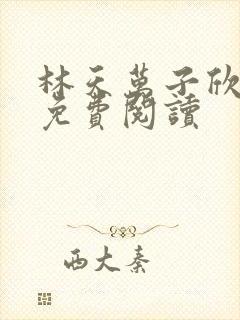 林天萬子欣
免費閱讀
西大秦